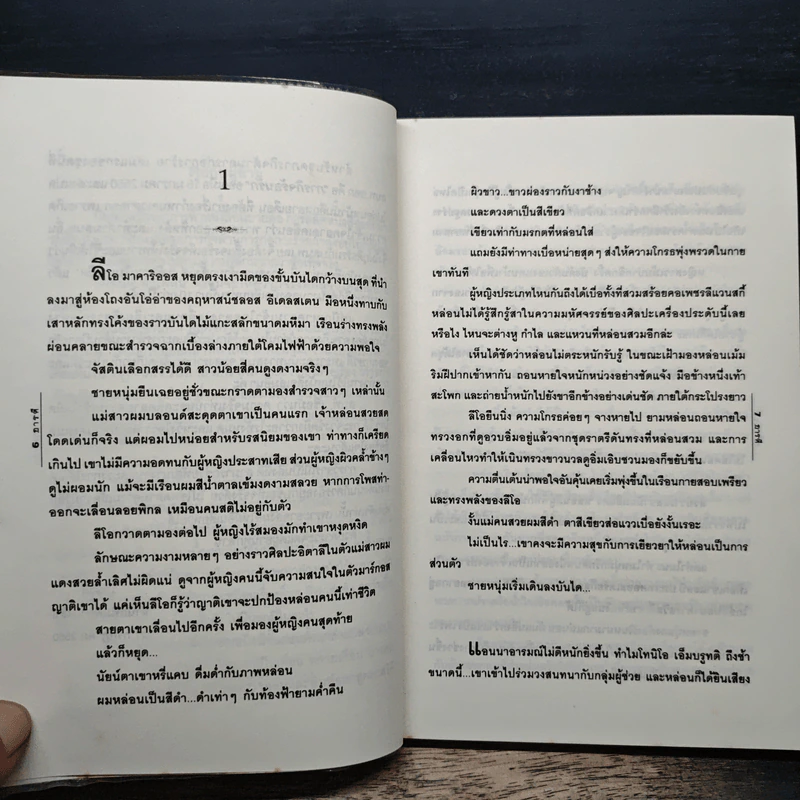 1
ลีโอ มาคาริออส หยุดตรงเงามืดของขั้นบันไดกว้างบนสุด ที่นำ
ลงมาสู่ห้องโถงอันโอ่อ่าของคฤหาสน์ชลอส อีเดลสเตน มือหนึ่งทาบกับ
เสาหลักทรงโค้งของราวบันไดไม้แกะสลักขนาดมหึมา เรือนร่างทรงพลัง
ผ่อนคลายขณะสำรวจฉากเบื้องล่างภายใต้โคมไฟฟ้าด้วยความพอใจ
จัสตินเลือกสรรได้ดี สาวน้อยสี่คนดูงดงามจริงๆ
ชายหนุ่มยืนเฉยอยู่ชั่วขณะกราดตามองสำรวจสาวๆ เหล่านั้น
แม่สาวผมบลอนด์สะดุดตาเขาเป็นคนแรก เจ้าหล่อนสวยสด
โดดเด่นก็จริง แต่ผอมไปหน่อยสำหรับรสนิยมของเขา ท่าทางก็เครียด
เกินไป เขาไม่มีความอดทนกับผู้หญิงประสาทเสีย ส่วนผู้หญิงผิวคล้ำข้างๆ
ดูไม่ผอมนัก แม้จะมีเรือนผมสีน้ำตาลเข้มงดงามสลวย หากการโพสท่า-
ออกจะเลื่อนลอยพิกล เหมือนคนสติไม่อยู่กับตัว
ลีโอกวาดตามองต่อไป ผู้หญิงไร้สมองมักทำเขาหงุดหงิด
ลักษณะความงามหลายๆ อย่างราวศิลปะอิตาลีในตัวแม่สาวผม
แดงสวยล้ำเลิศไม่ผิดแน่ ดูจากผู้หญิงคนนี้จับความสนใจในตัวมาร์กอส
ญาติเขาได้ แค่เห็นลีโอก็รู้ว่าญาติเขาจะปกป้องหล่อนคนนี้เท่าชีวิต
สายตาเขาเลื่อนไปอีกครั้ง เพื่อมองผู้หญิงคนสุดท้าย
แล้วก็หยุด...
นัยน์ตาเขาหรี่แคบ ดื่มด่ำกับภาพหล่อน
ผมหล่อนเป็นสีดำ...ดำเท่าๆ กับท้องฟ้ายามค่ำคืน
6 ธารตี
ผิวขาว...ขาวผ่องราวกับงาช้าง
และดวงตาเป็นสีเขียว
เขียวเท่ากับมรกตที่หล่อนใส่
แถมยังมีท่าทางเบื่อหน่ายสุดๆ ส่งให้ความโกรธพุ่งพรวดในกาย
เขาทันที
ผู้หญิงประเภทไหนกันถึงได้เบื่อทั้งที่สวมสร้อยคอเพชรลีแวนสกี้
หล่อนไม่ได้รู้สึกรู้สาในความมหัศจรรย์ของศิลปะเครื่องประดับนี้เลย
หรือไง ไหนจะต่างหู กำไล และแหวนที่หล่อนสวมอีกล่ะ
เห็นได้ชัดว่าหล่อนไม่ตระหนักรับรู้ ในขณะเฝ้ามองหล่อนเม้ม
ริมฝีปากเข้าหากัน ถอนหายใจหนักหน่วงอย่างชัดแจ้ง มือข้างหนึ่งเท้า
สะโพก และถ่ายน้ำหนักไปยังขาอีกข้างอย่างเด่นชัด ภายใต้กระโปรงยาว
ลีโอยืนนิ่ง ความโกรธค่อยๆ จางหายไป ยามหล่อนถอนหายใจ
ทรวงอกที่ดูอวบอิ่มอยู่แล้วจากชุดราตรีดันทรงที่หล่อนสวม และการ
เคลื่อนไหวทำให้เนินทรวงขาวนวลดูอิ่มเอิบชวนมองก็ขยับขึ้น
ความตื่นเต้นน่าพอใจอันคุ้นเคยเริ่มพุ่งขึ้นในเรือนกายสอบเพรียว
และทรงพลังของลีโอ
งั้นแม่คนสวยผมสีดำ ตาสีเขียวส่อแววเบื่อยังงั้นเรอะ
ไม่เป็นไร...เขาคงจะมีความสุขกับการเยียวยาให้หล่อนเป็นการ
ส่วนตัว
ชายหนุ่มเริ่มเดินลงบันได...
แอนนาอารมณ์ไม่ดีหนักยิ่งขึ้น ทำไมโทนิโอ เอ็มบรูทติ ถึงช้า
ขนาดนี้...เขาเข้าไปร่วมวงสนทนากับกลุ่มผู้ช่วย และหล่อนก็ได้ยินเสียง
7 ธารตี